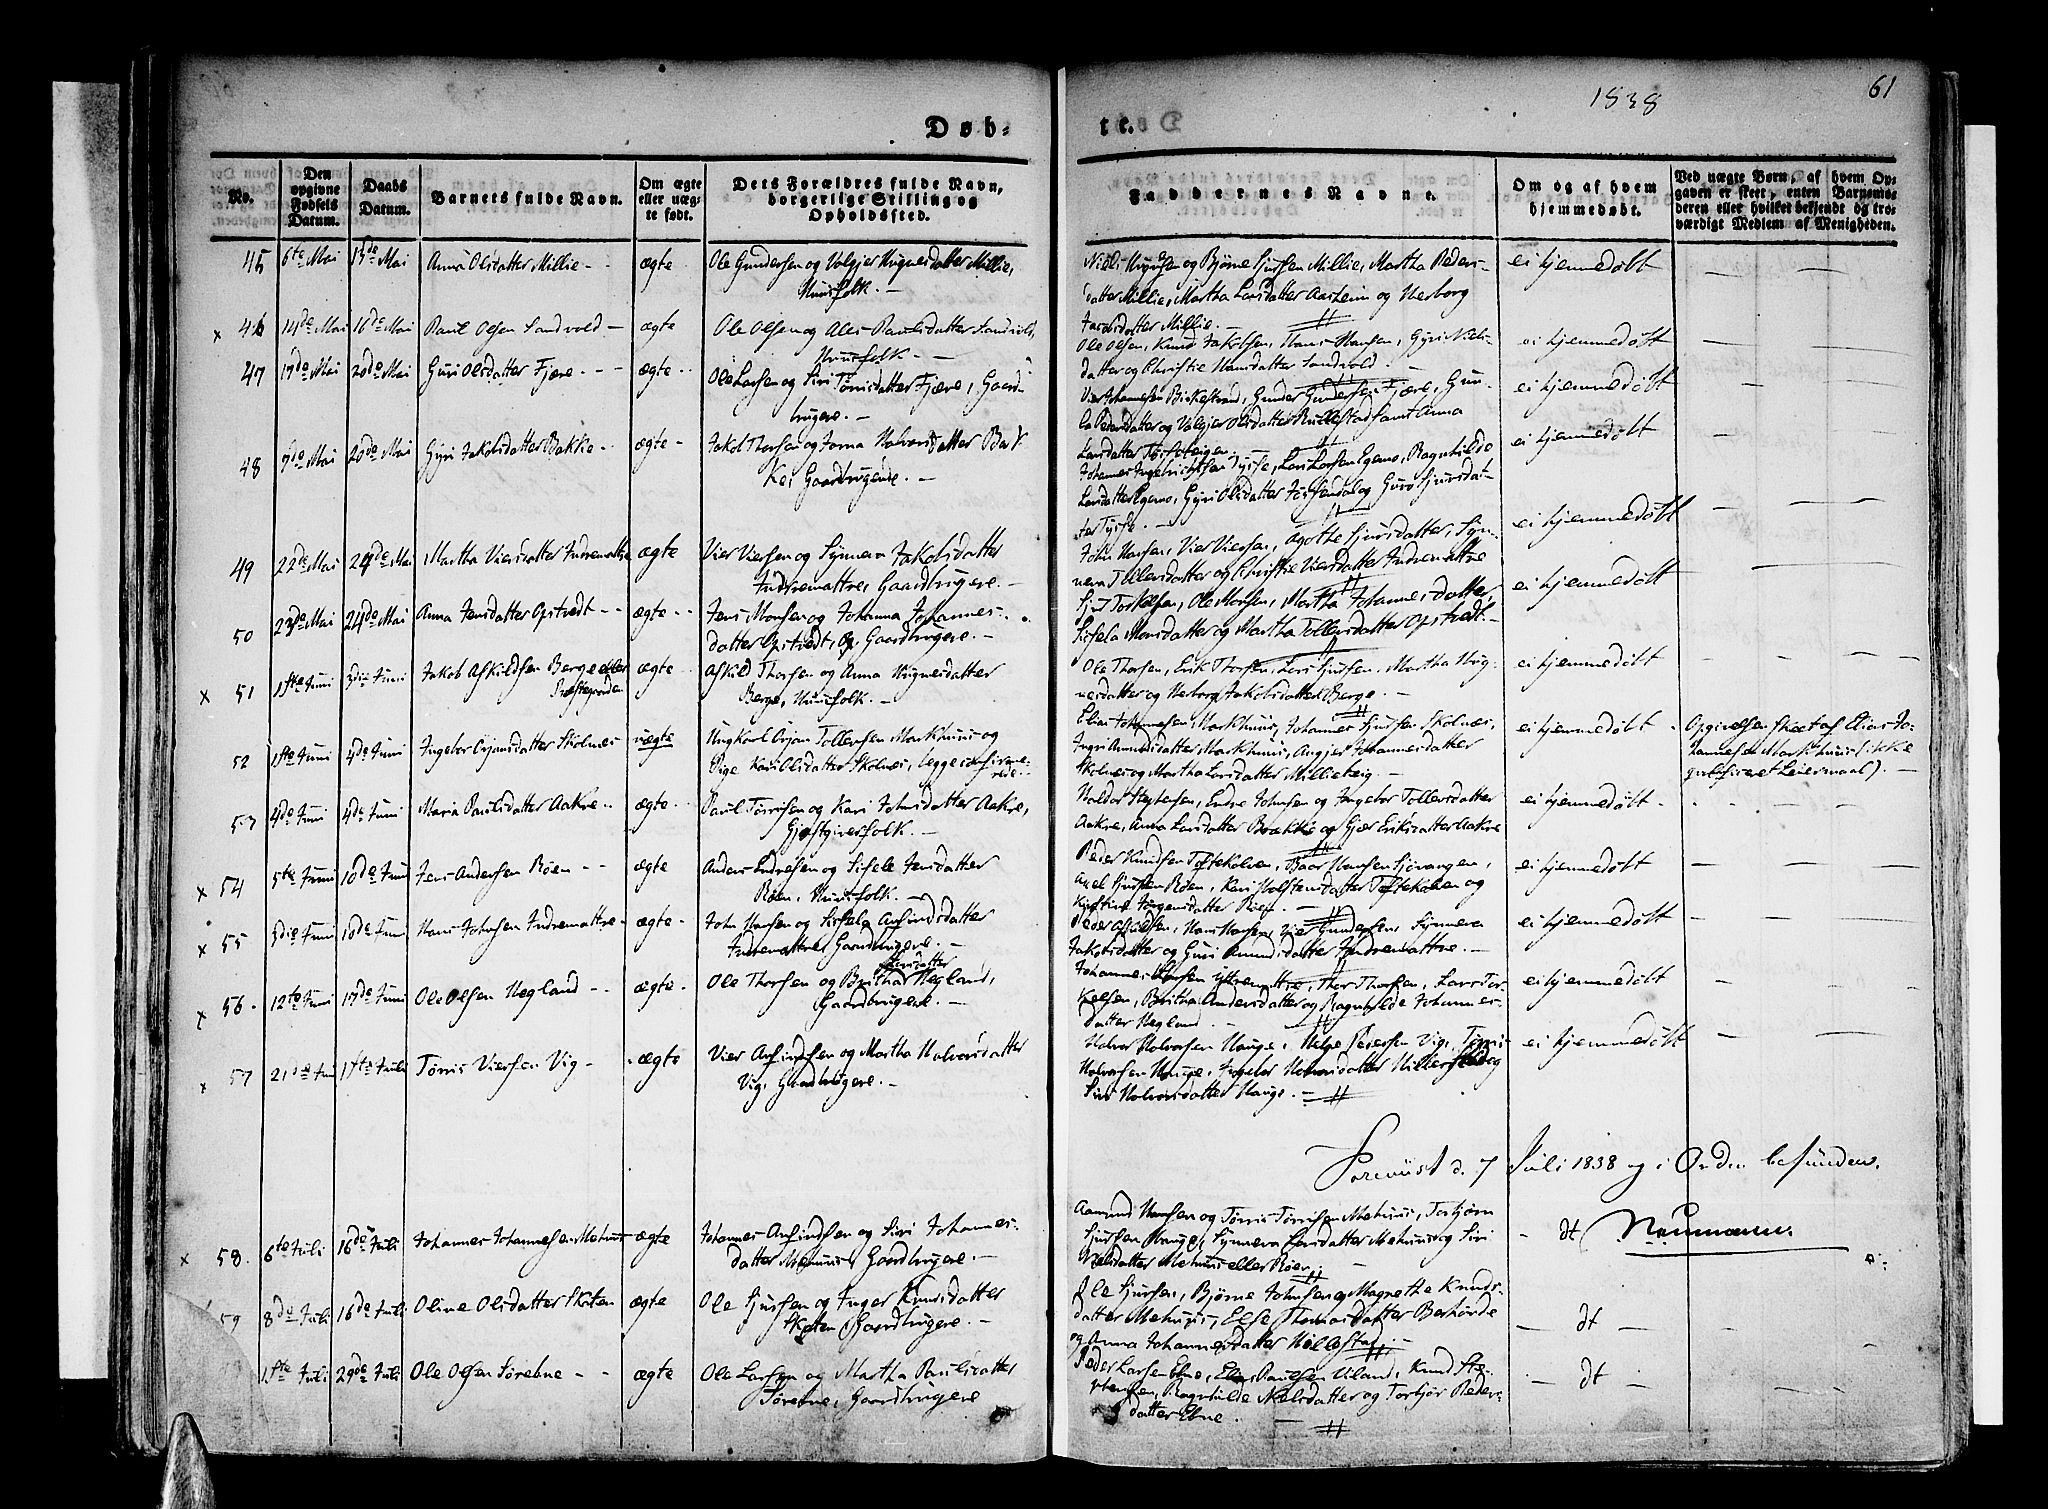 1838
61
Døb-
te.
No.
Den opgivne Fødsels Datum.
Daabs Datum.
Barnets fulde Navn.
Om ægte eller uæg- te født.
Dets Forældres fulde Navn, borgerlige Stilling og Opholdsted.
Faddernes Navne.
Om og af hvem hjemmedøbt.
Ved uægte Børn, af hvem Op- gaven er skeet, enten Barnemo- deren eller hvilket bekjendt og tro- værdigt Medlem af Menigheden.
45 6te Mai 13de Mai Anna Olsdatter Millie - - ægte Ole Gundersen og Valgjer Mognesdatter Millie,
Huusfolk. -
Niels Knudsen og Bjørne Sjursen Millie, Martha Peders-
datter Millie, Martha Larsdatter Aasheim og Herborg
datter Millie. -
ei hjemmedøbt
x 46 14de Mai 16de Mai Paul Olsen Sandvold - ægte Ole Olsen og Ales Paulsdatter Sandvold,
Huusfolk - -
Ole Olsen, Knud Jakobsen, Hans Hansen, Gyri Niels-
datter og Christie Hansdatter Sandvold. -
ei hjemmedøbt
47 17de Mai 20de Mai Guri Olsdatter Fjære - - - ægte - Ole Larsen og Siri Tørrisdatter Fjære, Gaard-
brugere. -
Vier Johannesen Birkestrand, Gunder Gundersen Fjære, Gun-
la Pedersdatter og Valgjer Olsdatter Rullestad samt Anna
Larsdatter
ei hjemmedøbt
48 7de Mai 20de Mai Gyri Jakobsdatter Bakke - ægte - Jakob Thorsen og Halvorsdatter Bak-
ke, Gaardbrugende. -
Johannes Ingebrichtsen Tysse, Lars Larsen Egemo, Ragnhilde
Larsdatter Egemo, Gyri Olsdatter og Guro Sjursdat-
ter Tysse. -
ei hjemmedøbt
49 22de Mai 24de Mai Martha Viersdatter Indremattre ægte Vier Viersen og Synneva Jakobsdatter
Indremattre, Gaardbrugere. -
John Hansen, Vier Viersen, Agothe Sjursdatter, Syn-
neva Tollersdatter og Christie Viersdatter Indremattre
ei hjemmedøbt
50 23de Mai 24de Mai Anna Jensdatter Opstvedt - - ægte - - Jens Monsen og Johanna Johannes-
datter Opstvedt, Gaardbrugere. -
Sjur Torkelsen, Ole Monsen, Martha Johannesdatter,
Sisela Monsdatter og Martha Tollersdatter Opstvedt -
ei hjemmedøbt
x 51 1ste Juni 3die Juni Jakob Askildsen Berge eller
Præstegaarden
ægte - Askild Thorsen og Anna Mognesdatter
Berge, Huusfolk. -
Ole Thorsen, Erik Thorsen, Lars Sjursen, Martha Mog-
nesdatter og Herborg Jakobsdatter Berge. -
ei hjemmedøbt
52 1ste Juni 4de Juni Ingebor Ørjansdatter Skolnes uægte Ungkarl Ørjan Tollersen Markhuus og
Pige Kari Olsdatter Skolnes, begge confirme-
rede -
Elias Johannesen, Markhuus, Johannes Sjursen Skolnes,
Ingri Amundsdatter Markhuus, Angjer Johannesdatter
Skolnes og Martha Larsdatter Millieteig. -
ei hjemmedøbt -
Opgivelsen skeet af Elias Jo-
hannesen Markhuus (ikke
qvalificeret Leiermaal). -
53 4de Juni 4de Juni Maria Paulsdatter Aakre - - ægte - Paul Tørrisen og Kari Johnsdatter Aakre,
Gjæstgiverfolk. -
Haldor Steffensen, Endre Johnsen og Ingebor Tollersdatter
Aakre, Anna Larsdatter Brække og Gjør Eriksdatter Aakre
ei hjemmedøbt -
x 54 5te Juni 10de Juni Jens Andersen Røen - - ægte Anders Endresen og Sisele Jensdatter
Røen, Huusfolk. -
Peder Knudsen Toftekalven, Baar Hansen Sjovangen,
Axel Sjursen Røen, Kari Holstensdatter Toftekalven og
Kristine Jørgensdatter Røen. -
ei hjemmedøbt
x 55 3die Juni 10de Juni Hans Johnsen Indremattre - ægte - John Hansen og Sisela Arfindsdatter
Indremattre, Gaardbrugere. -
Peder Askildsen, Hans Hansen, Vier Gundersen, Synneva
Jakobsdatter og Guri Amundsdatter Indremattre. -
ei hjemmedøbt
x 56. 12te Juni 17de Juni Ole Olsen Hegland - - ægte - Ole Thorsen og Britha Larsdatter Hegland,
Gaardbrugere. -
Johannes Larsen Ytremattre, Thor Thorsen, Lars Tor-
kelsen, Britha Andersdatter og Ragnhilde Johannes-
datter Hegland. -
ei hjemmedøbt
x 57 21de Juni 1ste Juli Tørris Viersen Vig - - ægte Vier Arfindsen og Martha Halvorsdatter
Vig, Gaardbrugere. -
Halvor Halvorsen Hauge, Helge Pedersen Vig, Tørris
Halvorsen Hauge, Ingebor Hansdatter og
Siri Halvorsdatter Hauge. -
ei hjemmedøbt
Foreviist d. 7 Juli 1838 og i Orden befunden.
Neumann.
x 58. 6te Juli 16de Juli Johannes Johannesen Mehuus ægte Johannes Arfindsen og Siri Johannes-
datter Mehuus, Gaardbrugere. -
Aamund Hansen og Tørris Tørrisen Mehuus, Torbjørn
Sjursen Hauge, Synneva Larsdatter Mehuus og Siri
Nielsdatter Mehuus eller Røen. -
- dt
59 8de Juli 16de Juli Oline Olsdatter Skaten ægte Ole Sjursen og Inger Knudsdatter
Skaten Gaardbrugere. -
Ole Sjursen, Bjørne Johnsen og Magrethe Knuds-
datter Mehuus, Else Thomasdatter Børhövde
og Anna Johannesdatter Hillestad. -
- dt -
1ste Juli 29de Juli Ole Olsen Sørebne - - ægte Ole Larsen og Martha Paulsdatter
Sørebne, Gaardbrugere
Peder Larsen Ebne, Elias Paulsen Viland, Knud Ste-
phensen, Ragnhilde Nielsdatter og Torbjør Peders-
datter Ebne. -
- dt -